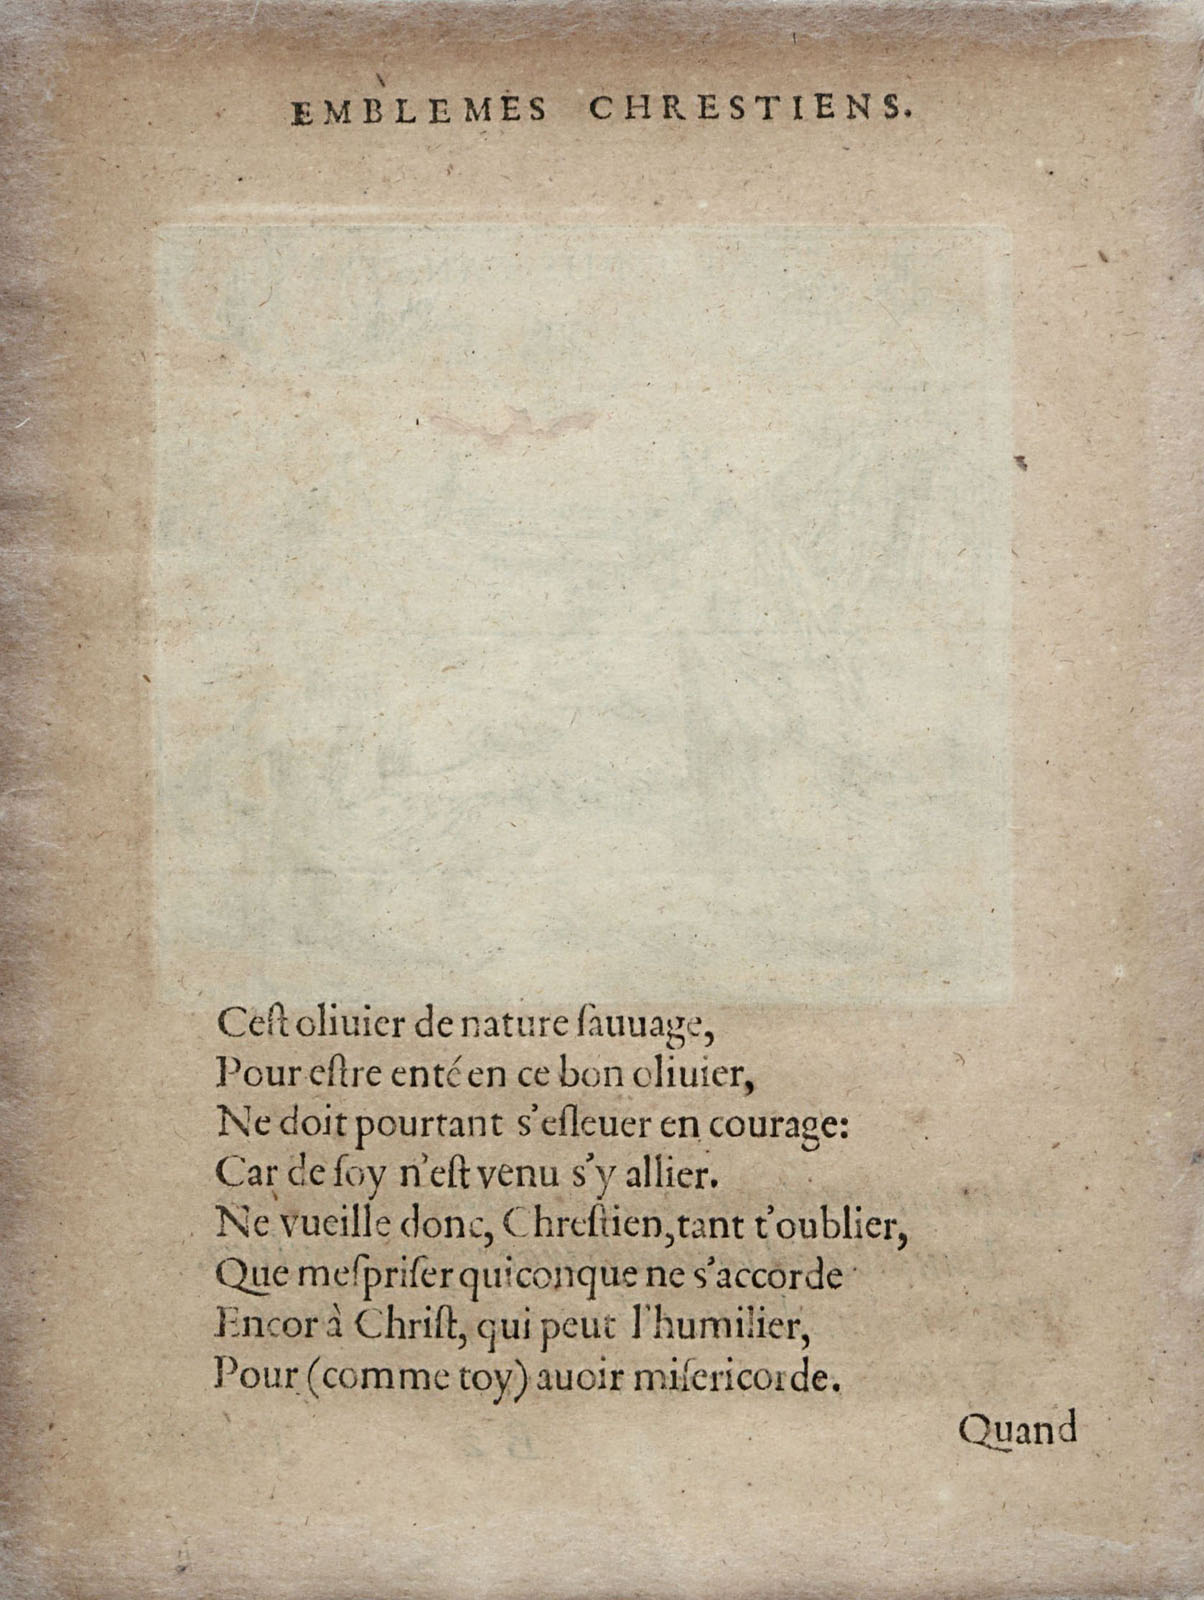 EMBLEMES CHRESTIENS.
Ceſt oliuier de nature ſauuage,
Pour eſtre enté en ce bon oliuier,
Ne doit pourtant s'eſleuer en courage:
Car de ſoy n'eſt venu s'y allier.
Ne vueille donc, Chreſtien, tant t'oublier,
Que meſpriſer quiconque ne s'accorde
Encor à Chriſt, qui peut l'humilier,
Pour (comme toy) auoir miſericorde.
Quand